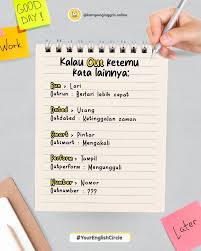 GOOD DAY!
@kampunginggris.online
Work
Kalau Out Ketemu
Kata lainnya:
Run > Lari
Outrun : Berlari lebih cepat
Dated > Usang
Outdated : Ketinggalan zaman
Smart > Pintar
Outsmart : Mengakali
Perform > Tampil
Outperform : Mengungguli
Number > Nomor
Outnumber : ???
#YourEnglishCircle
Later